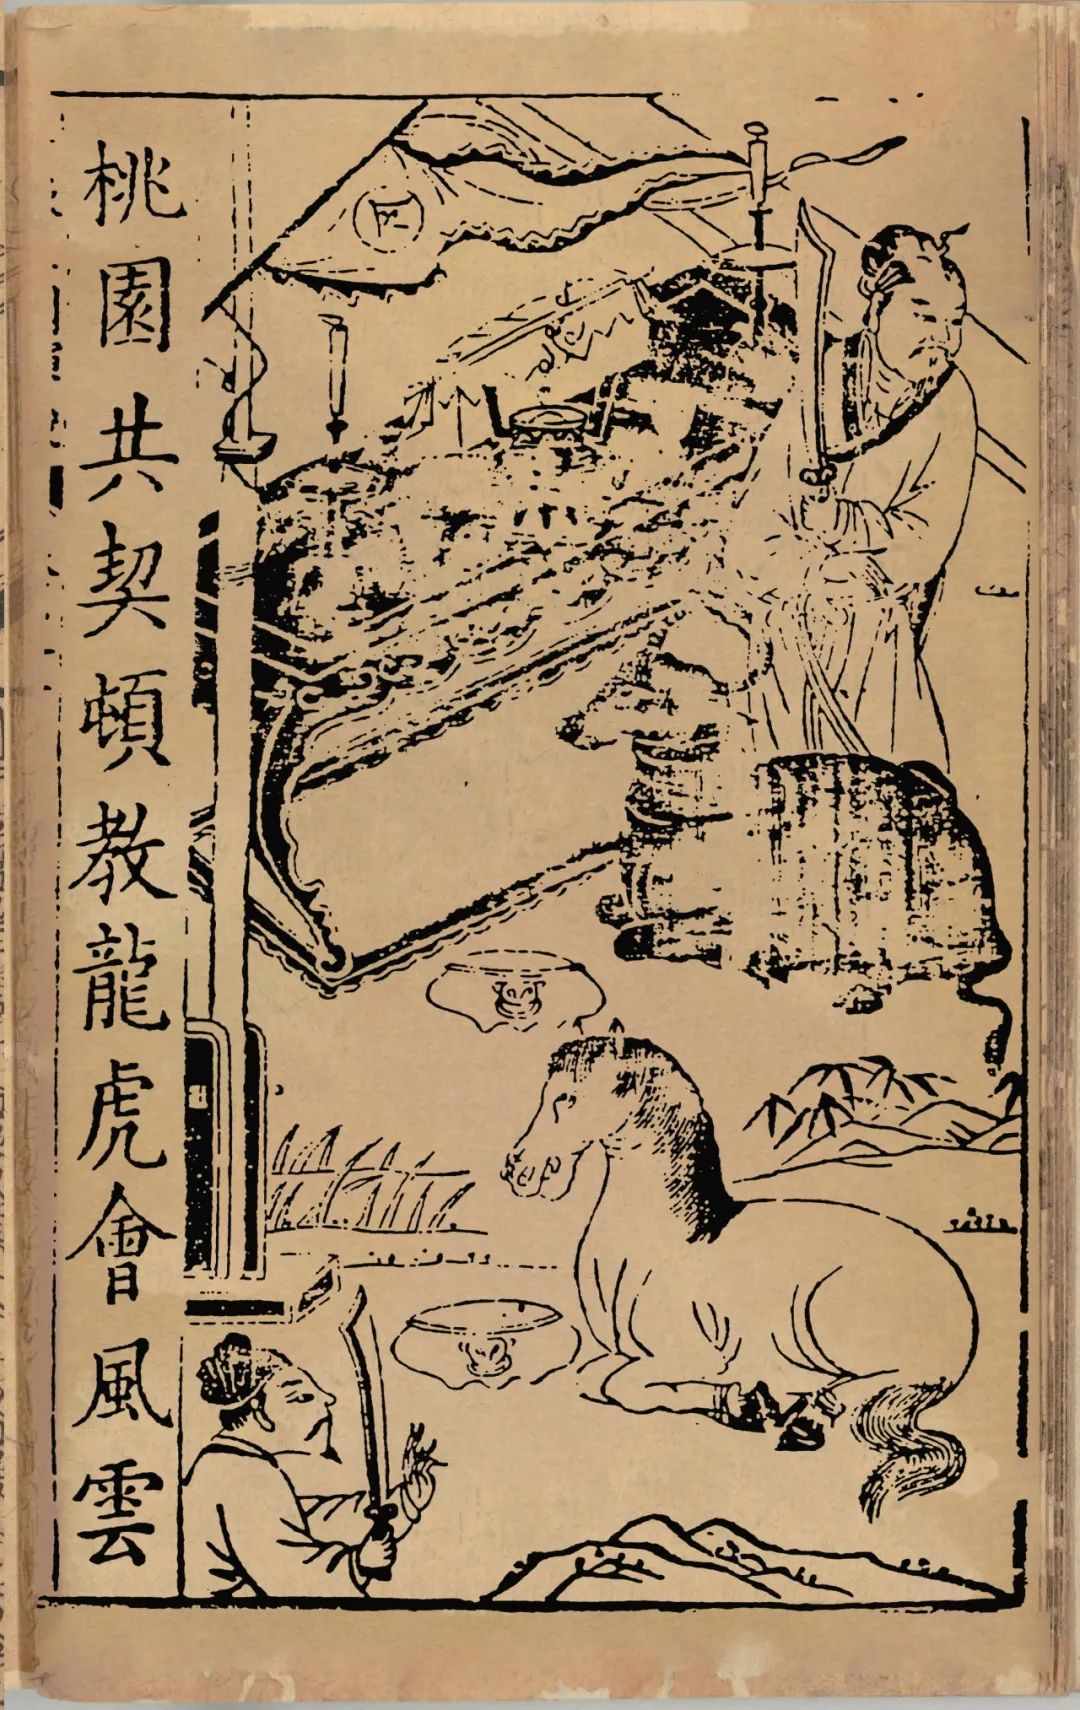 桃園共契頓教龍虎會風雲